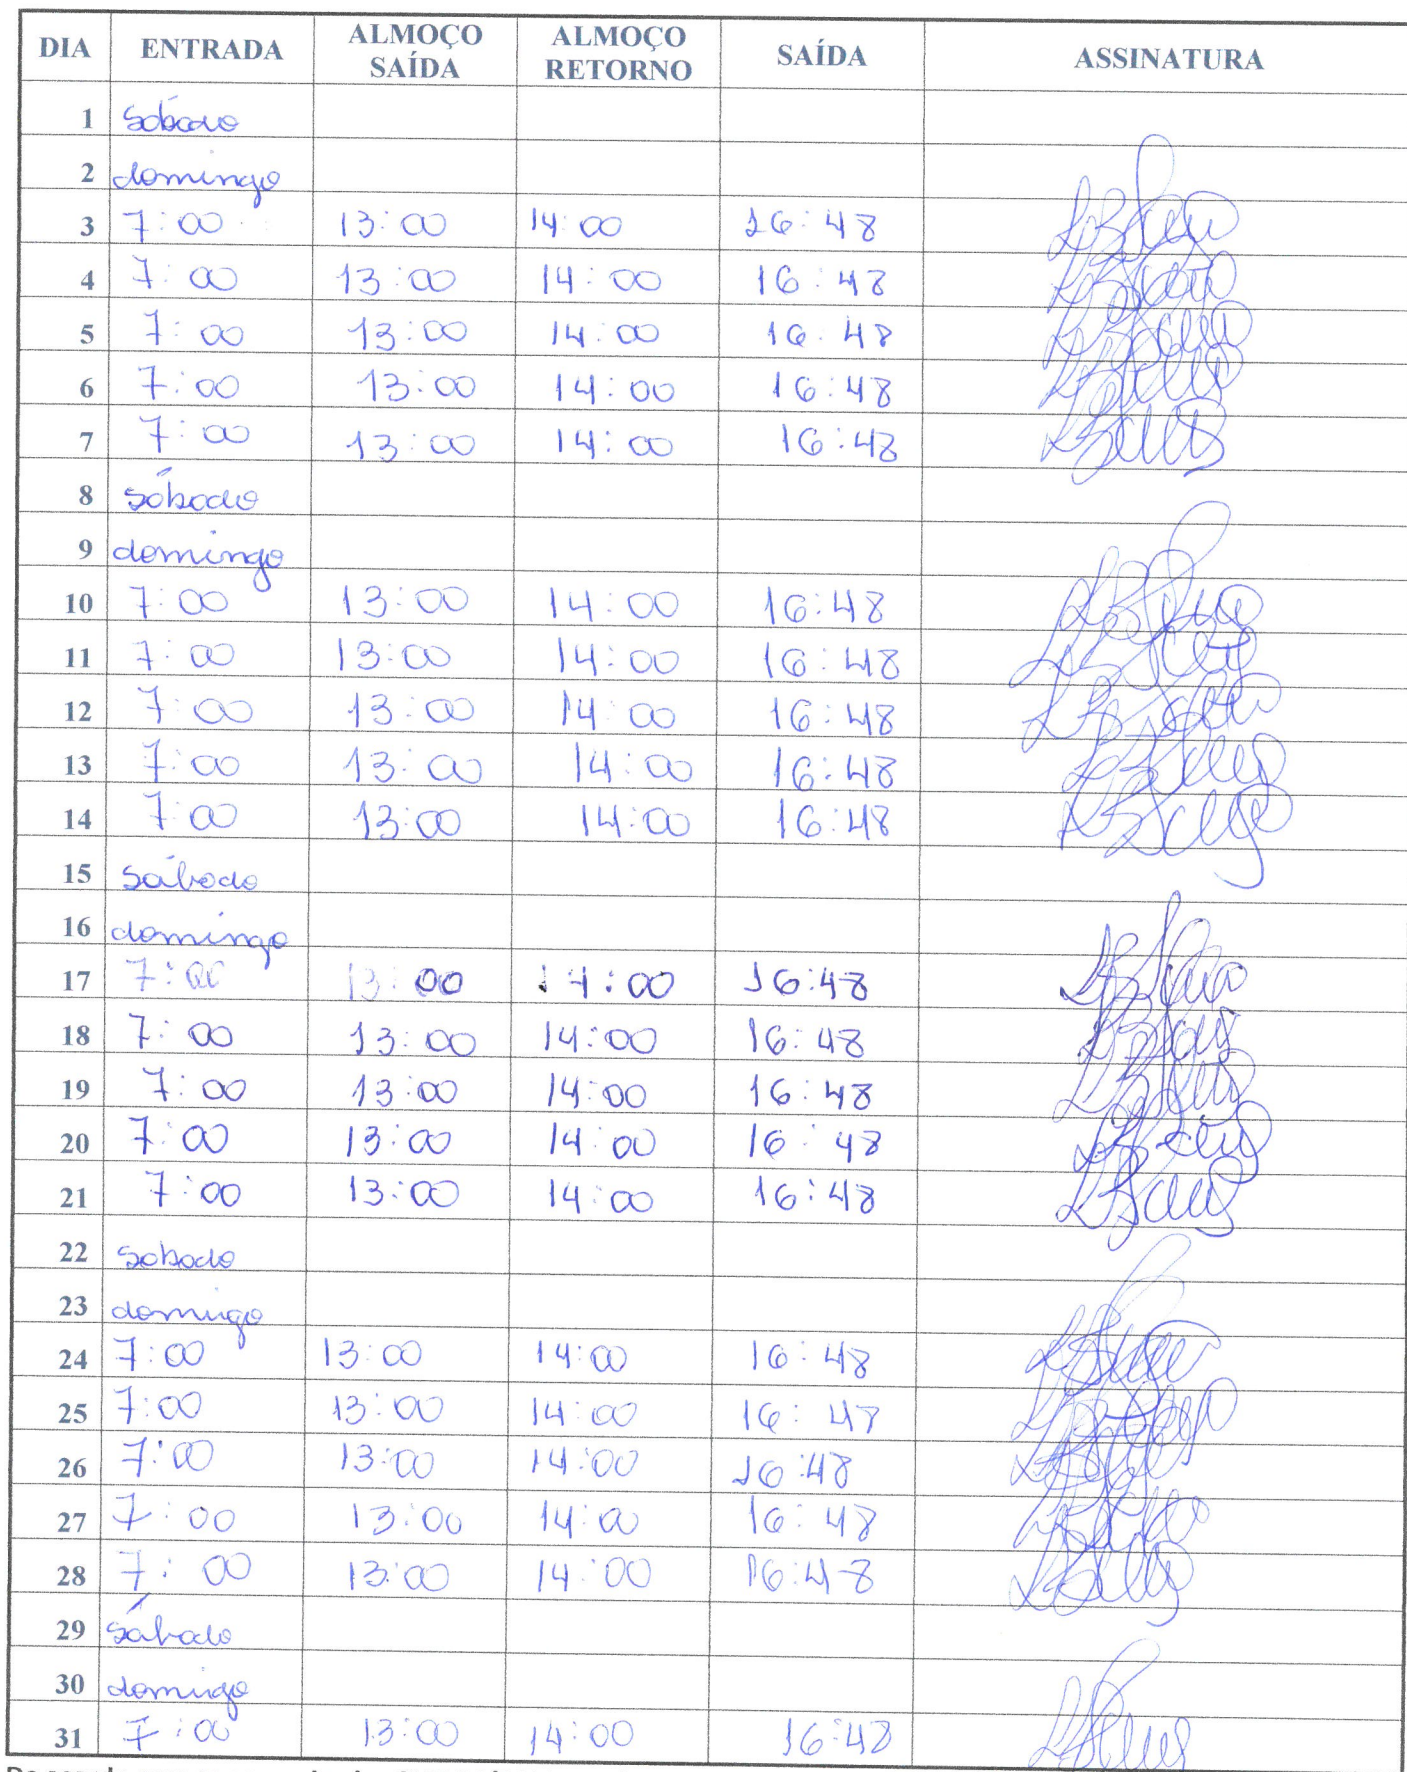 DIA ENTRADA ALMOÇO SAÍDA ALMOÇO RETORNO SAÍDA ASSINATURA
1 sábado
2 domingo
3 7:00 13:00 14:00 16:48
4 7:00 13:00 14:00 16:48
5 7:00 13:00 14:00 16:48
6 7:00 13:00 14:00 16:48
7 7:00 13:00 14:00 16:48
8 sábado
9 domingo
10 7:00 13:00 14:00 16:48
11 7:00 13:00 14:00 16:48
12 7:00 13:00 14:00 16:48
13 7:00 13:00 14:00 16:48
14 7:00 13:00 14:00 16:48
15 sábado
16 domingo
17 7:00 13:00 14:00 16:48
18 7:00 13:00 14:00 16:48
19 7:00 13:00 14:00 16:48
20 7:00 13:00 14:00 16:48
21 7:00 13:00 14:00 16:48
22 sabado
23 domigo
24 7:00 13:00 14:00 16:48
25 7:00 13:00 14:00 16:48
26 7:00 13:00 14:00 16:48
27 7:00 13:00 14:00 16:48
28 7:00 13:00 14:00 16:48
29 sábado
30 domigo
31 7:00 13:00 14:00 16:48